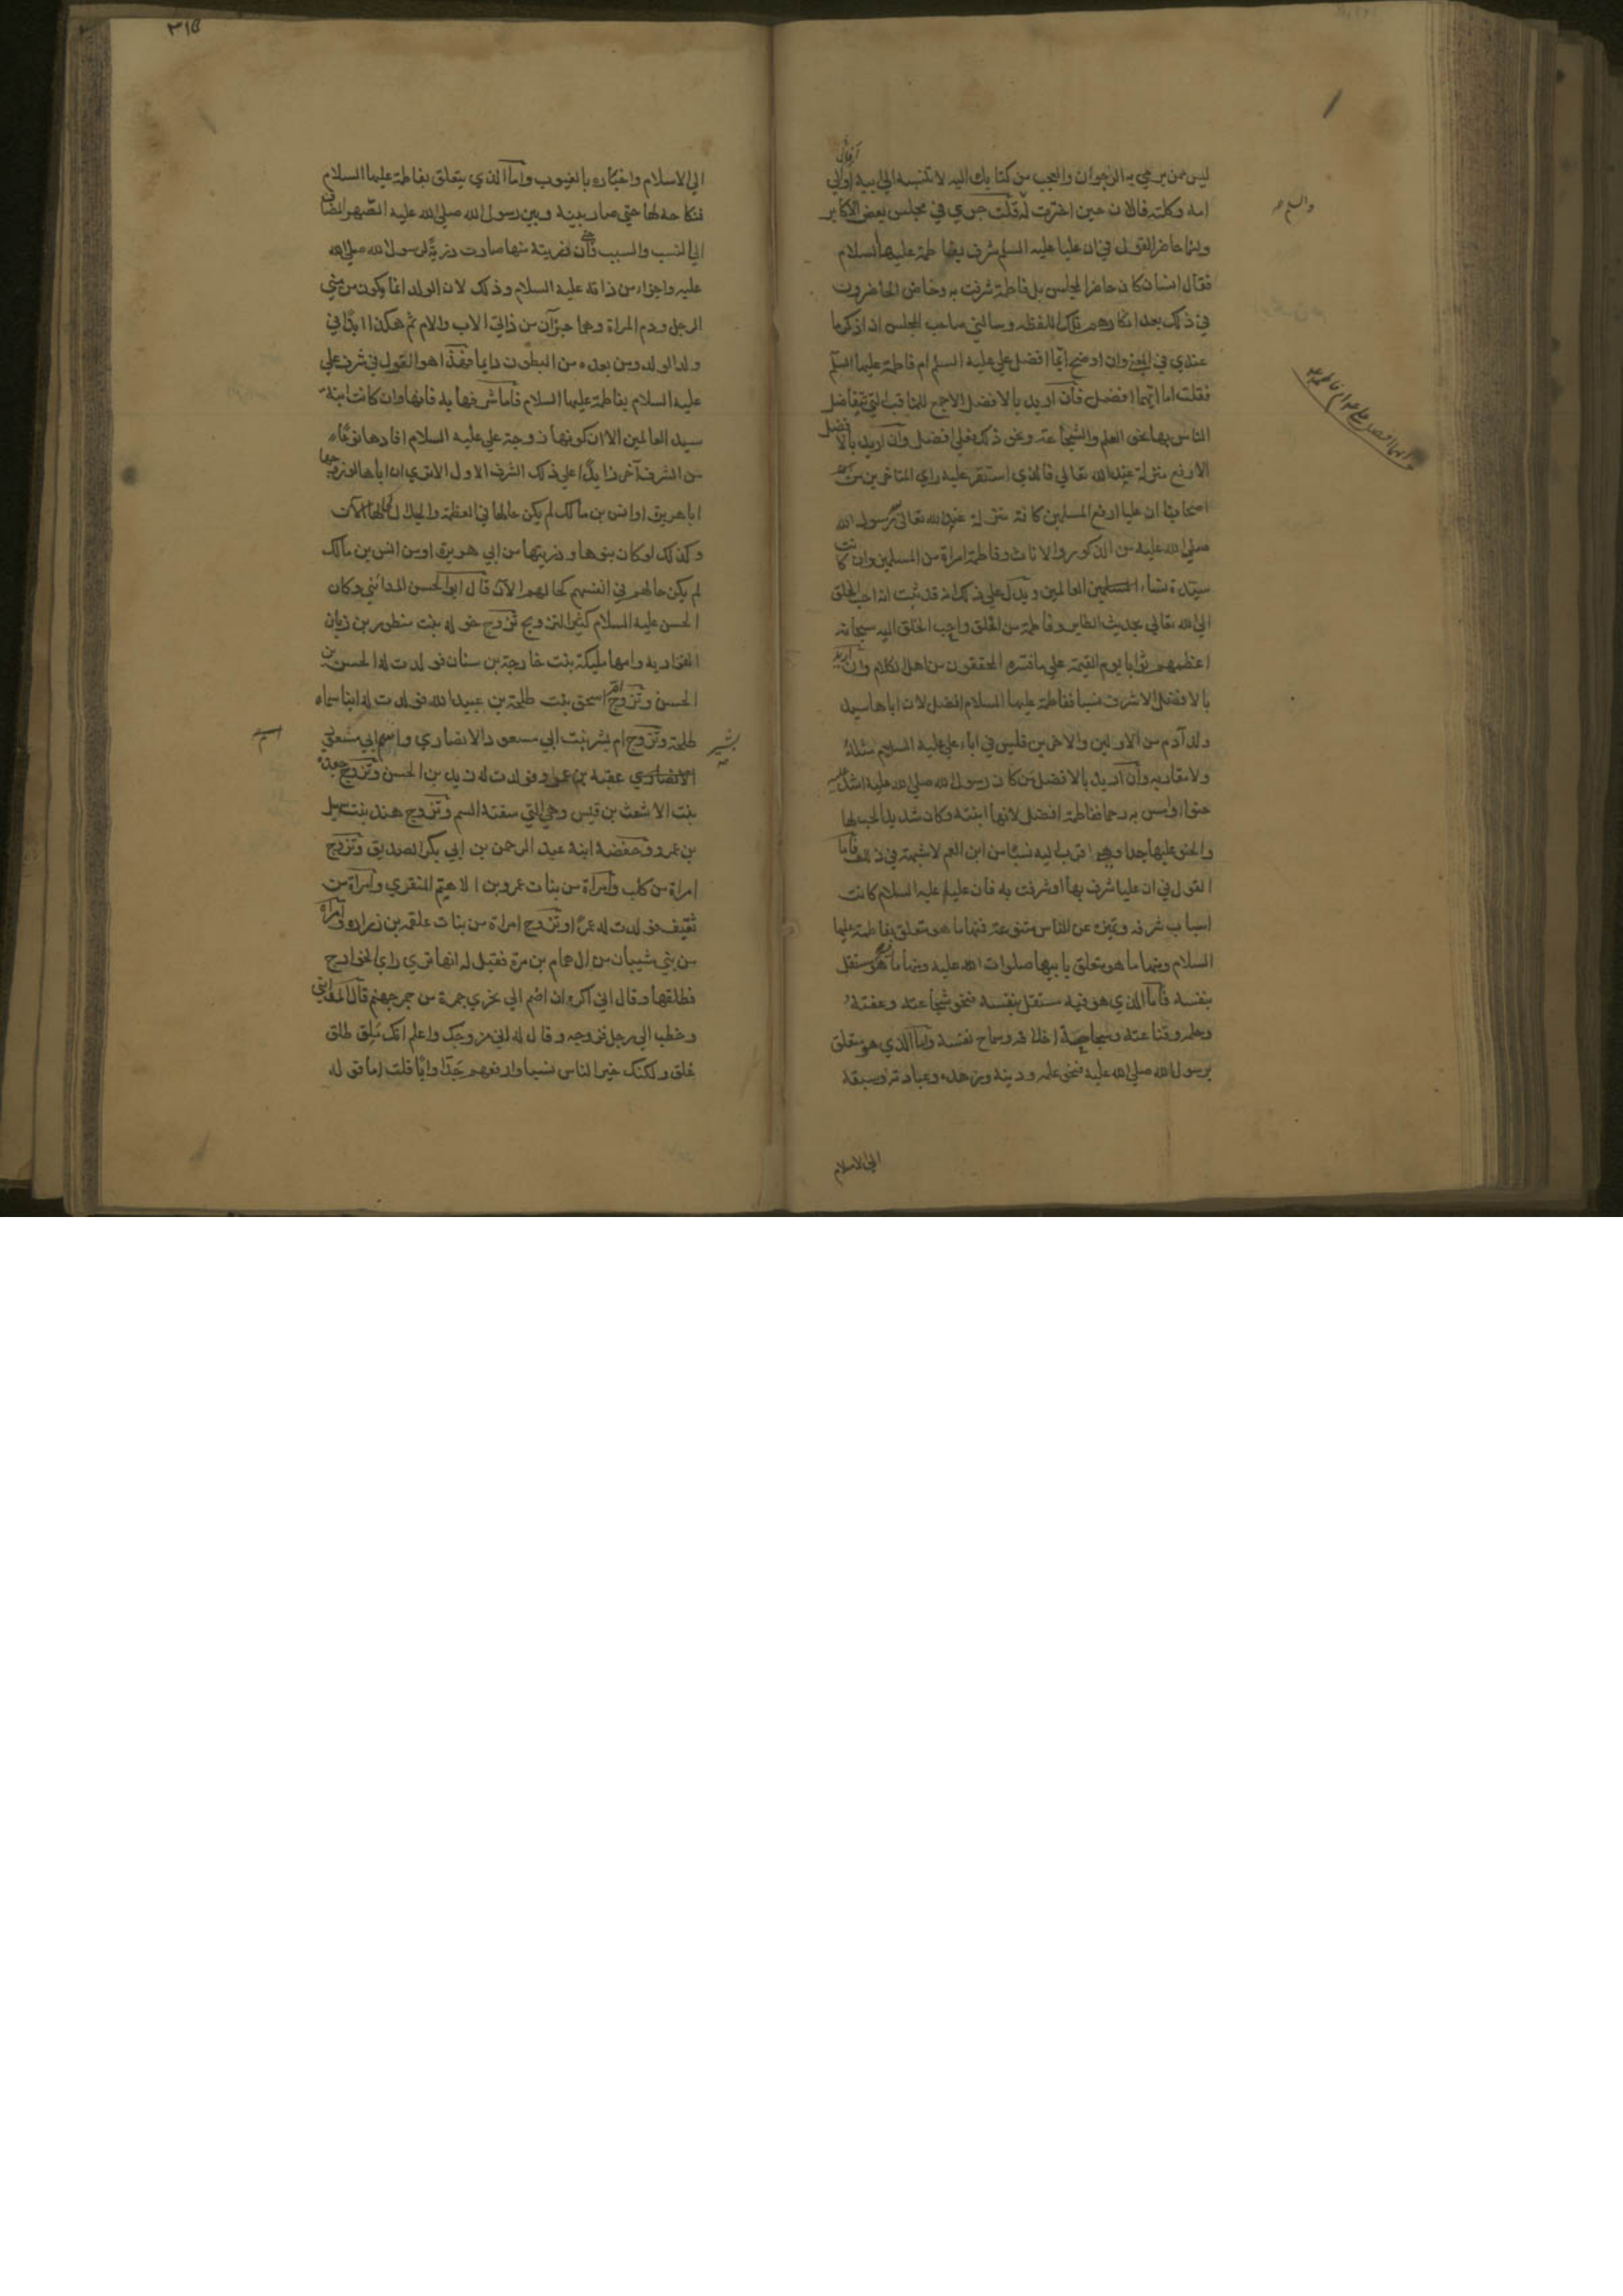 ليس ممن يرعي به الرجوان والعجب من كتابك اليه لا تنسبه الي ابيه أوالي
امه وكلته فالآن حين اخترت له قلت جري في مجلس بعض الاكابر
وانا حاضر القول في ان عليا عليه السلم شرف بفاطمة عليها السلام
فقال انسان كان حاضر المجلس بل فاطمة شرفت به وخاض الحاضرون
في ذلك بعد انكارهم تلك اللفظه وسالني صاحب المجلس ان اذكر ما
عندي في المعني وان اوضح ايما افضل علي عليه السلم ام فاطمة عليها السلم
فقلت اما ايهما افضل فأن اريد بالافضل الاجمع للمناقب التي تتفاضل
الناس بها نحو العلم والشجاعة ونحو ذلك فعلي افضل وان اريد بالافضل
الارفع منزلة عند الله تعالي فالذي استقر عليه راي المتاخرين من
اصحابنا ان عليا ارفع المسلمين كافة منزلة عند الله تعالي بعد رسول الله
صلي الله عليه من الذكور والاناث وفاطمة امراة من المسلمين وان كانت
سيدة نساء العالمين ويدل علي ذلك انه قد ثبت انه احب الخلق
الي الله تعالي بحديث الطاير وفاطمة من الخلق واحب الخلق اليه سبحانه
اعظمهم ثوابا يوم القيمة علي ما فسره المحققون من اهل الكلام وان اريد
بالافضل الاشرف نسبا ففاطمة عليها السلام افضل لان اباها سيد
ولد آدم من الاولين والاخرين فليس في اباء علي عليه السلام مثله
ولا مقاربه وأن اريد بالافضل من كان رسول الله صلي الله عليه اشد عليه
حنوا وامس به رحما ففاطمة افضل لانها ابنته وكان شديد الحب لها
والحنو عليها جدا وهي اقرب اليه نسبا من ابن العم لا شبهة في ذلك فأما
القول في ان عليا شرف بها أو شرفت به فأن عليا عليه السلام كانت
اسباب شرفه وتميزه عن الناس متنوعة فمنها ما هو متعلق بفاطمة عليها
السلام ومنها ما هو متعلق بابيها صلوات الله عليه ومنها ما هو مستقل
بنفسه فأما الذي هو فيه مستقل بنفسه فنحو شجاعته وعفته
وحلمه وقناعته وسجاحة اخلاقه وسماح نفسه واما الذي هو متعلق
برسول الله صلي الله عليه فنحو علمه ودينه وزهده وعبادته وسبقه
الي الاسلام
ايهما افضل علي ام فاطمة
٣١٥
الي الاسلام واخباره بالغيوب واما الذي يتعلق بفاطمة عليها السلام
فنكاحه لها حتي صار بينه وبين رسول الله صلي الله عليه الصهر المضاف
الي النسب والسبب وحتي أن ذريته منها صارت ذرية لرسول الله صلي الله
عليه واجزاء من ذاته عليه السلام وذلك لان الولد انما يكون من مني
الرجل ودم المراة وهما جزآن من ذاتي الاب والام ثم هكذا ابدا في
ولد الولد ومن بعده من البطون دايما فهذا هو القول في شرف علي
عليه السلام بفاطمة عليها السلام فأما شرفها به فانها وان كانت ابنة
سيد العالمين الا ان كونها زوجة علي عليه السلام افادها نوعا
من الشرف آخر زايدا علي ذلك الشرف الاول الا تري ان اباها لو زوجها
ابا هريرة او انس بن مالك لم يكن حالها في العظمة والجلال كحالها الآن
وكذلك لو كان بنوها وذريتها من ابي هريرة او من انس بن مالك
لم يكن حالهم في انفسهم كحالهم الآن قال ابو الحسن المدائني وكان
الحسن عليه السلام كثير التزويج تزوج خوله بنت منظور بن زبان
الفزاريه وامها مليكة بنت خارجة بن سنان فولدت له الحسن بن
الحسن وتزوج ام اسحق بنت طلحة بن عبيد الله فولدت له ابنا سماه
طلحة وتزوج ام بشر بنت ابي مسعود الانصاري واسم ابي مسعود
الانصاري عقبة بن عمرو فولدت له زيد بن الحسن وتزوج جعدة
بنت الاشعث بن قيس وهي التي سقته السم وتزوج هند بنت سهيل
بن عمرو وحفصة ابنة عبد الرحمن بن ابي بكر الصديق وتزوج
امراة من كلب وأمراة من بنات عمرو بن الاهيم المنقري وأمراة من
ثقيف فولدت له عمرا وتزوج امراة من بنات علقمه بن زراره وامراه
من بني شيبان من ال همام بن مرة فقيل له انها تري راي الخوارج
فطلقها وقال اني اكره ان اضم الي نحري جمرة من جمر جهنم قال المدايني
وخطب الي رجل فزوجه وقال له اني مزوجك واعلم انك ملق طلق
غلق ولكنك خير الناس نسبا وارفعهم جدا وابا قلت اما قوله
بشير